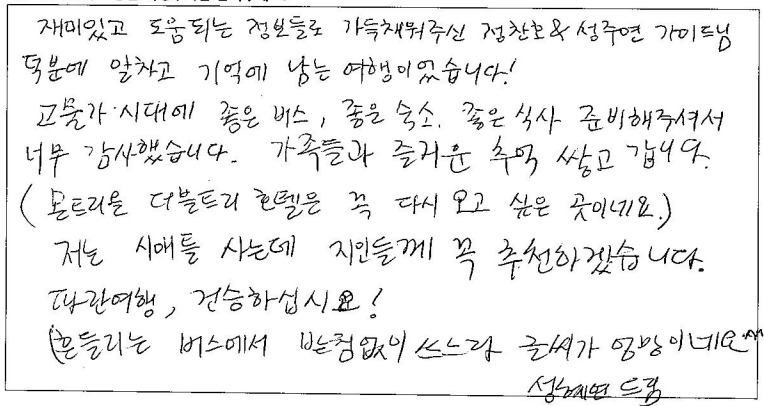 재미있고 도움되는 정보들로 가득채워주신 정찬호 & 성주연 가이드님
덕분에 알차고 기억에 남는 여행이었습니다!
고물가 시대에 좋은 버스, 좋은 숙소. 좋은 식사 준비해주셔서
너무 감사했습니다. 가족들과 즐거운 추억 쌓고 갑니다.
(몬트리올 더블트리 호텔은 꼭 다시 오고 싶은 곳이네요.)
저는 시애틀 사는데 지인들께 꼭 추천하겠습니다.
파란여행, 건승하십시요!
(흔들리는 버스에서 받침없이 쓰느라 글씨가 엉망이네요^^
성혜연 드림